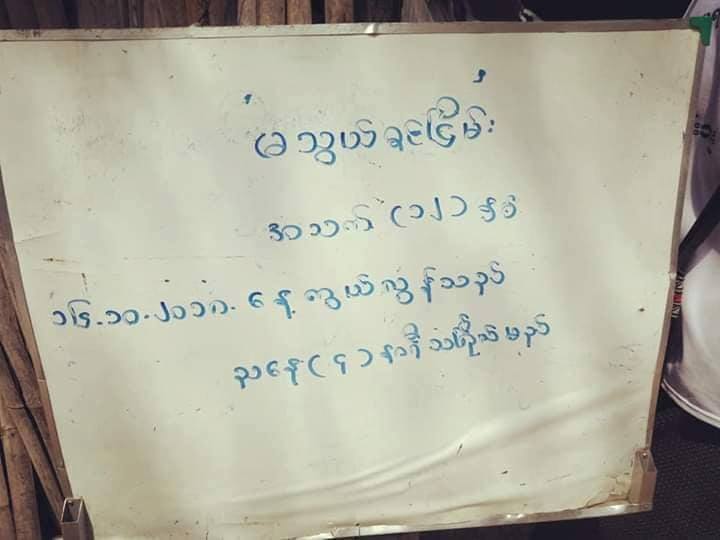 "မသွယ်ရင်ငြိမ်း"
အသက် (၁၂) နှစ်
၁၆.၁၀.၂၀၁၈. နေ့ ကွယ်လွန်သည်
ညနေ (၄) နာရီ သင်္ဂြိုဟ်မည်